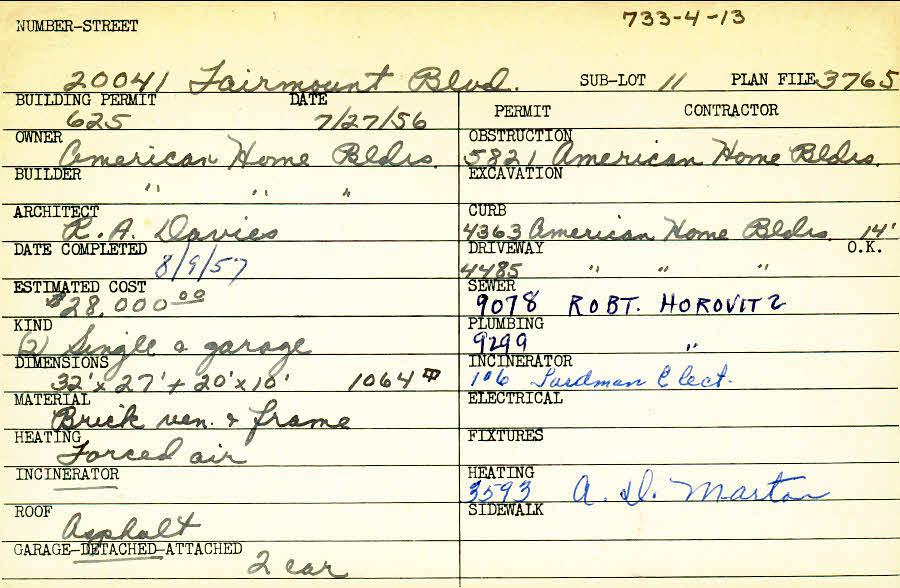 733-4-13
NUMBER-STREET
20041 Fairmount Blvd. SUB-LOT 11 PLAN FILE 3765
BUILDING PERMIT DATE
625 7/27/56
OWNER
American Home Bldrs.
BUILDER
" " "
ARCHITECT
R. A. Davies
DATE COMPLETED
8/9/57
ESTIMATED COST
$28,000.00
KIND
(2) Single & garage
DIMENSIONS
32' x 27' + 20' x 10' 1064
MATERIAL
Brick ven. & frame
HEATING
Forced air
INCINERATOR
ROOF
Asphalt
GARAGE-DETACHED-ATTACHED
2 car
PERMIT CONTRACTOR
OBSTRUCTION
5821 American Home Bldrs.
EXCAVATION
CURB
4363 American Home Bldrs. 14'
DRIVEWAY O.K.
4485 " " "
SEWER
9078 ROBT. HOROVITZ
PLUMBING
9299 "
INCINERATOR
106 Elect.
ELECTRICAL
FIXTURES
HEATING
3593 A. D. Marton
SIDEWALK